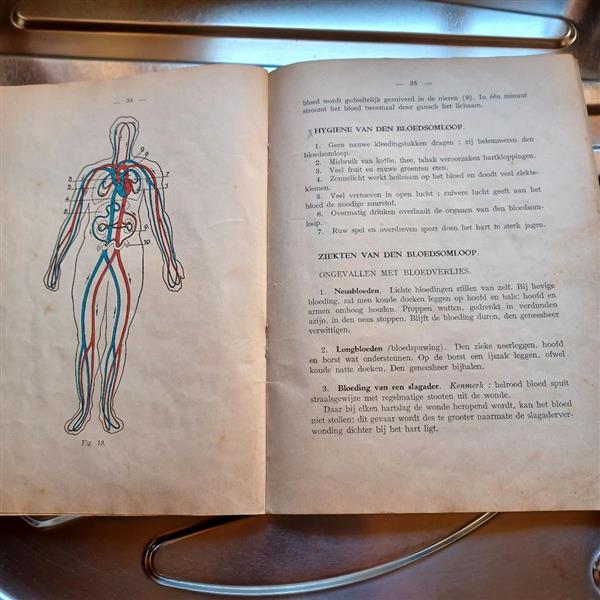 — 34 —
Fig. 19.
— 35 —
bloed wordt gedeeltelijk gezuiverd in de nieren (9). In één minuut
stroomt het bloed tweemaal door gansch het lichaam.
HYGIENE VAN DEN BLOEDSOMLOOP.
1. Geen nauwe kleedingstukken dragen : zij belemmeren den
bloedsomloop.
2. Misbruik van koffie, thee, tabak veroorzaken hartkloppingen.
3. Veel fruit en rauwe groenten eten.
4. Zonnelicht werkt heilzaam op het bloed en doodt veel ziekte-
kiemen.
5. Veel vertoeven in open lucht ; zuivere lucht geeft aan het
bloed de noodige zuurstof.
6. Overmatig drinken overlaadt de organen van den bloedsom-
loop.
7. Ruw spel en overdreven sport doen het hart te sterk jagen.
ZIEKTEN VAN DEN BLOEDSOMLOOP.
ONGEVALLEN MET BLOEDVERLIES.
1. Neusbloeden. Lichte bloedingen stillen van zelf. Bij hevige
bloeding, zal men koude doeken leggen op hoofd en hals; hoofd en
armen omhoog houden. Proppen watten, gedrenkt in verdunden
azijn, in den neus stoppen. Blijft de bloeding duren, den geneesheer
verwittigen.
2. Longbloeden (bloedspuwing). Den zieke neerleggen, hoofd
en borst wat ondersteunen. Op de borst een ijszak leggen, ofwel
koude natte doeken. Den geneesheer bijhalen.
3. Bloeding van een slagader. Kenmerk : helrood bloed spuit
straalsgewijze met regelmatige stooten uit de wonde.
Daar bij elken hartslag de wonde heropend wordt, kan het bloed
niet stollen; dit gevaar wordt des te grooter naarmate de slagaderver-
wonding dichter bij het hart ligt.